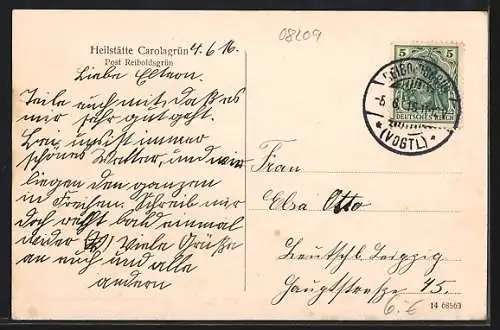 08209
Heilstätte Carolagrün 4.6.16.
Post Reiboldsgrün
Liebe Eltern.
Teile euch mit, daß es
mir sehr gut geht.
uns ist immer
schönes Wetter, und wir
liegen den ganzen
im Freien. Schreib mir
doch recht bald einmal
wieder Viele Grüße
an euch und alle
andern
5 5
DEUTSCHES REICH
* (VOGTL) *
Frau
Elsa Otto
Deutschl. Leipzig
Hauptstrasse 45.
6.-€
14 08563